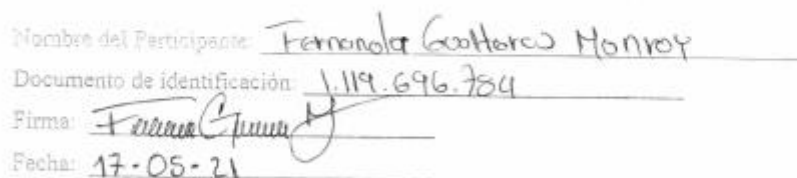 Nombre del Participante: Fernanda Monroy
Documento de identificación: 1.119.696.784
Firma:
Fecha: 17-05-21